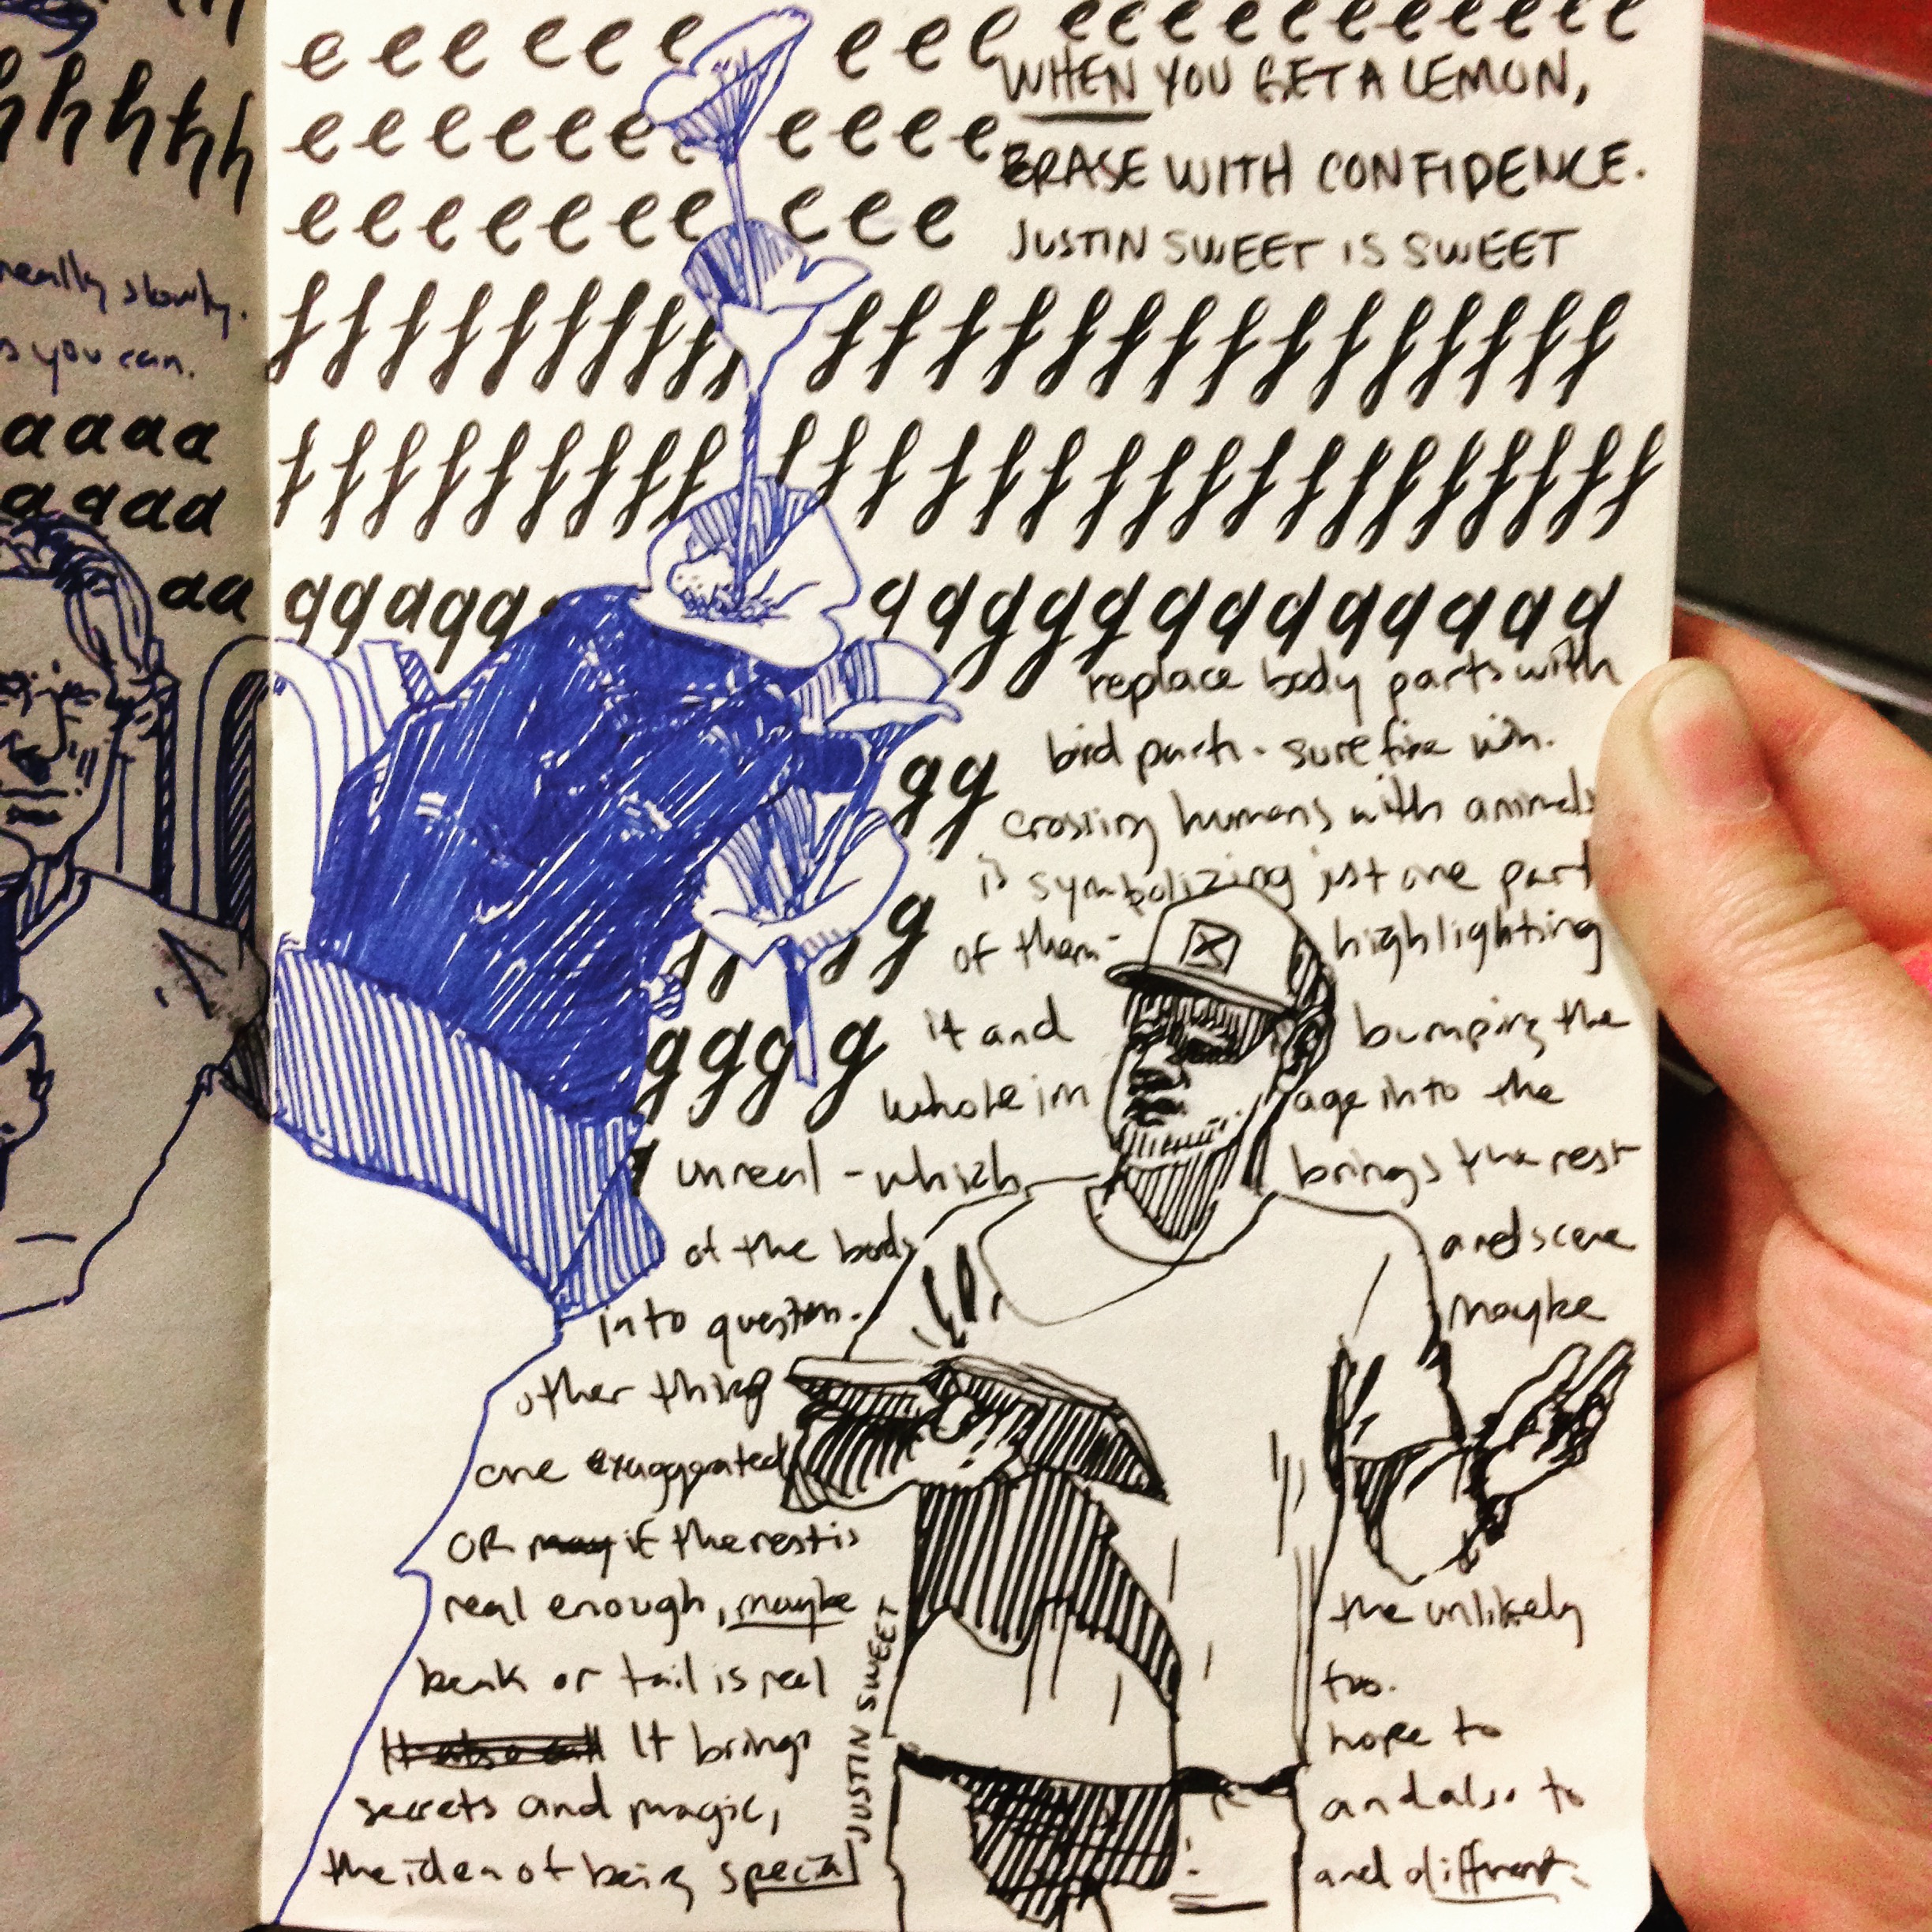 hhhhh
really slowly.
s you can.
aaaaa
aaaaa
aa
e e e e e e e e e e e e e e e e e e e e
WHEN YOU GET A LEMON,
e e e e e e e e e e
ERASE WITH CONFIDENCE.
e e e e e e e e e e
JUSTIN SWEET IS SWEET
f f f f f f f f f f f f f f f f f f f f f f f
f f f f f f f f f f f f f f f f f f f f f f f f
g g g g g g g g g g g g g g g g g g
replace body parts with
bird parts. surefire win.
gg
crossing humans with animals
is symbolizing just one part
g
of them - highlighting
gggg
it and bumping the
whole image into the
unreal - which brings the rest
of the body and scene
into question. Maybe
other thing
one exaggerated
OR may if the rest is
real enough, maybe the unlikely
beak or tail is real too.
It brings hope to
secrets and magic, and also to
the idea of being special and different.
JUSTIN SWEET